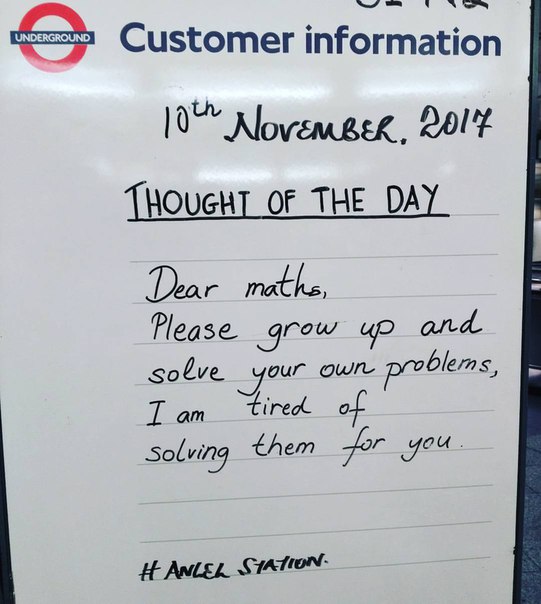 UNDERGROUND
Customer information
10th NOVEMBER, 2017
THOUGHT OF THE DAY
Dear maths,
Please grow up and
solve your own problems,
I am tired of
solving them for you.
# ANGEL STATION.